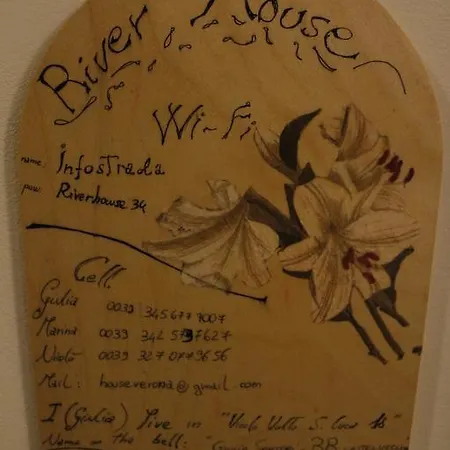 River House
Wi-Fi
name: InfosTrada
pasw: Riverhouse 34
Cell.
Giulia 0039 345 677 7007
Marina 0039 342 5797627
Nicolò 0039 327 0779656
Mail: house.verona@gmail.com
I (Giulia) live in "Vicolo Volto S. Luca 18"
Name on the bell: 3B